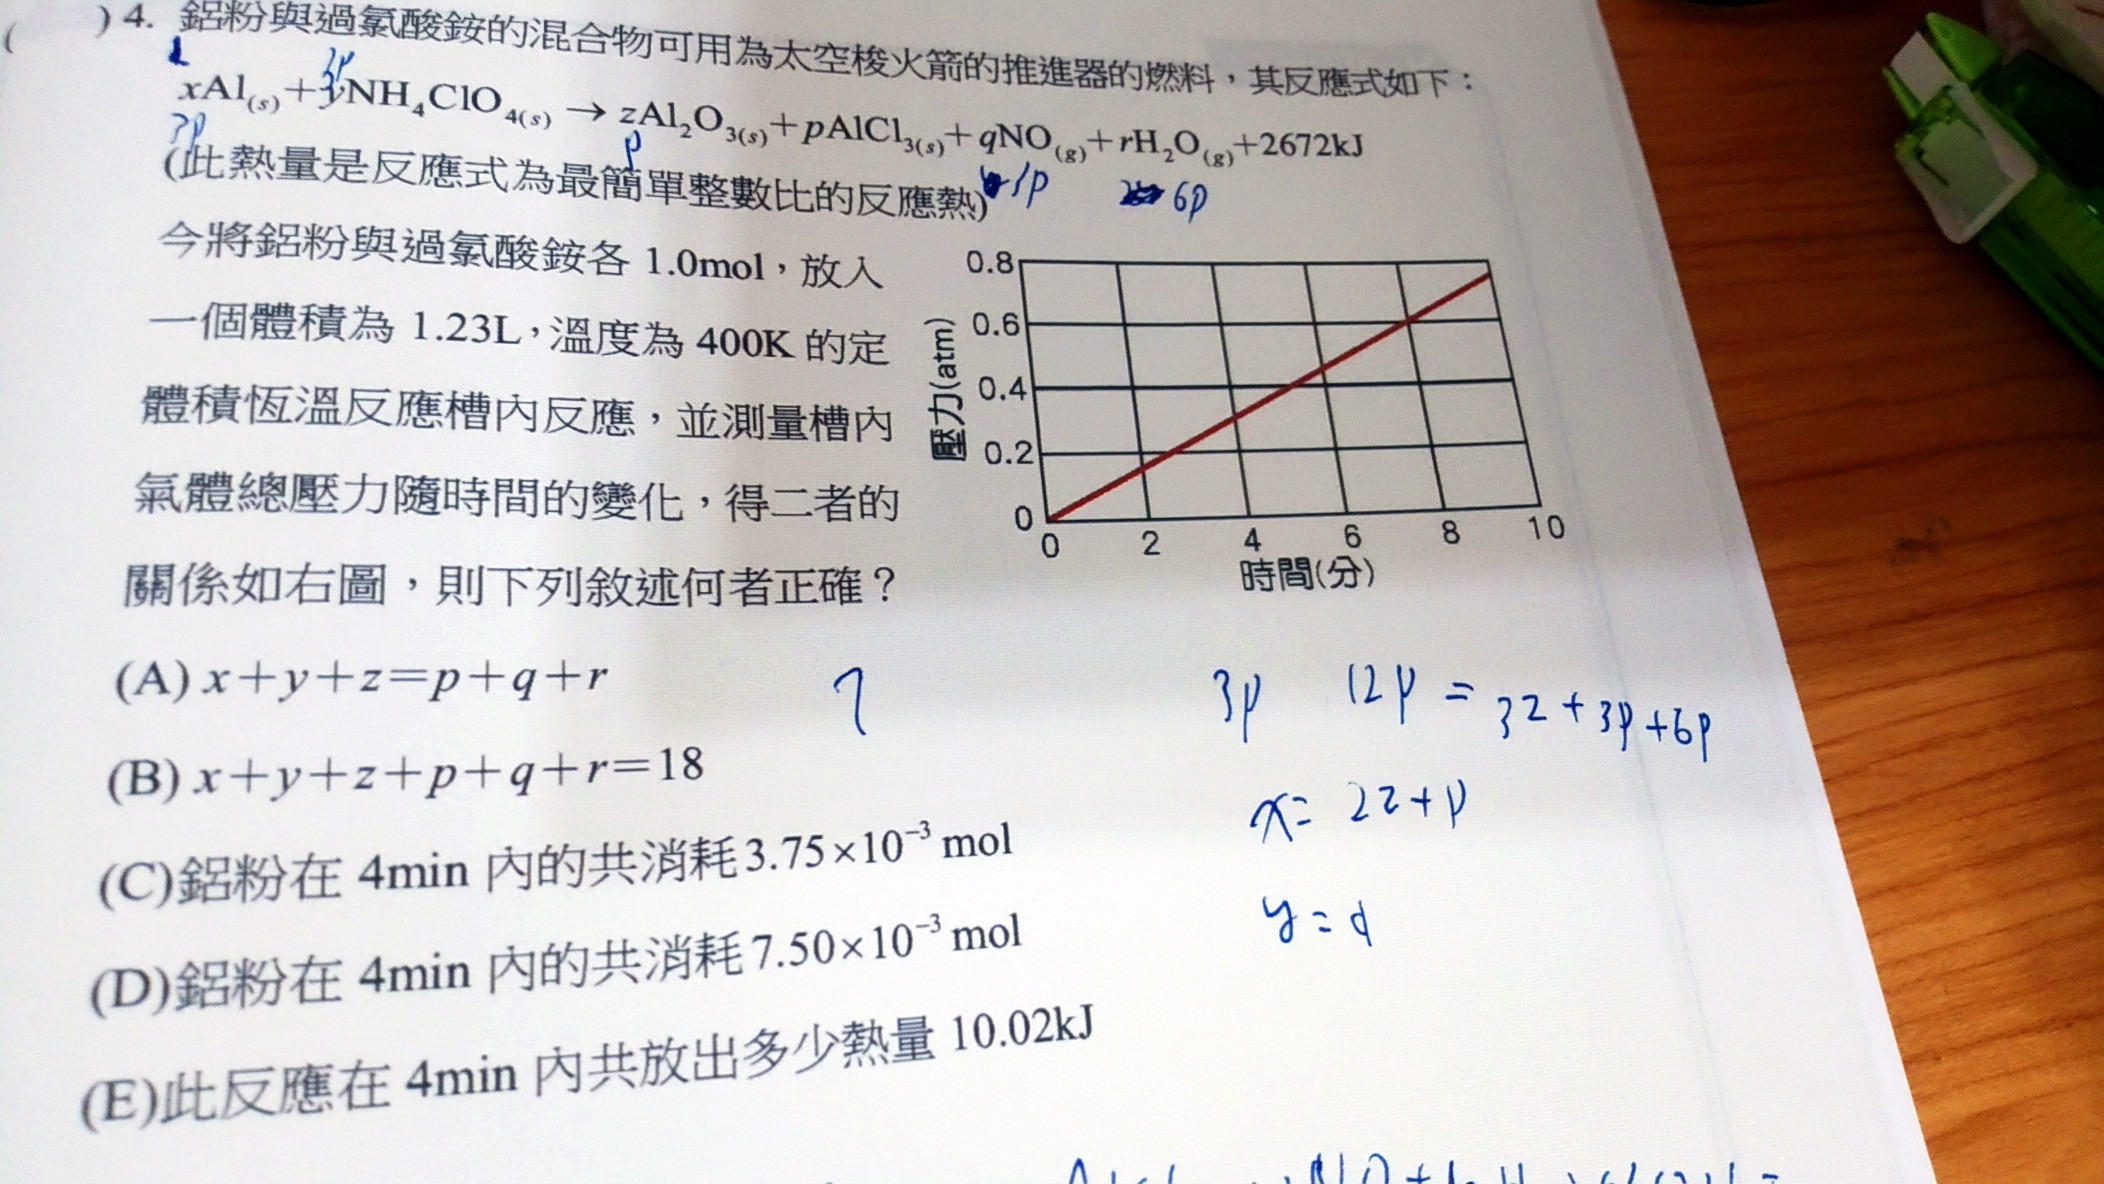 ( ) 4. 鋁粉與過氯酸銨的混合物可用為太空梭火箭的推進器的燃料，其反應式如下：
3p
xAl(s)+yNH₄ClO₄(s) → zAl₂O₃(s)+pAlCl₃(s)+qNO(g)+rH₂O(g)+2672kJ
3p p 3p 6p
(此熱量是反應式為最簡單整數比的反應熱)
今將鋁粉與過氯酸銨各 1.0mol，放入
一個體積為 1.23L，溫度為 400K 的定
體積恆溫反應槽內反應，並測量槽內
氣體總壓力隨時間的變化，得二者的
關係如右圖，則下列敘述何者正確？
壓力(atm)
0.8
0.6
0.4
0.2
0
0 2 4 6 8 10
時間(分)
(A) x+y+z=p+q+r
(B) x+y+z+p+q+r=18
(C)鋁粉在 4min 內的共消耗3.75×10⁻³ mol
(D)鋁粉在 4min 內的共消耗7.50×10⁻³ mol
(E)此反應在 4min 內共放出多少熱量 10.02kJ
3p 12p = 3z+3p+6p
x= 2z+p
y=q